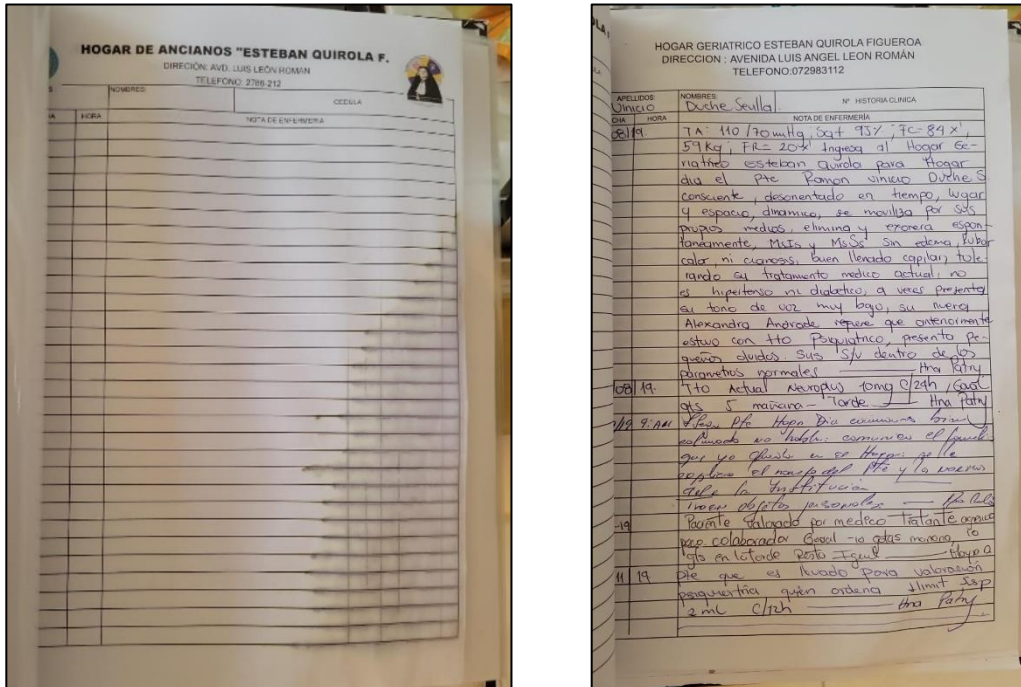 HOGAR DE ANCIANOS "ESTEBAN QUIROLA F.
DIRECIÓN: AVD. LUIS LEÓN ROMÁN
TELEFONO: 2786-212
NOMBRES:
CEDULA
HORA
NOTA DE ENFERMERIA
HOGAR GERIATRICO ESTEBAN QUIROLA FIGUEROA
DIRECCION : AVENIDA LUIS ANGEL LEON ROMÁN
TELEFONO:072983112
APELLIDOS: NOMBRES: Nº HISTORIA CLINICA
Vinicio Duche Sevilla
CHA HORA NOTA DE ENFERMERÍA
08/19. TA: 110/70 mmHg, Sat 95%, FC= 84 x',
59 Kg; FR= 20x' Ingresa al Hogar Ge-
riatrico esteban Quirola para Hogar
dia el Pte Ramon vinicio Duche S.
consciente, desorientado en tiempo, lugar
y espacio, dinamico, se moviliza por sus
propios medios, elimina y excreta espon-
taneamente, MsIs y MsSs sin edema, Rubor
calor, ni cianosis, buen llenado capilar, tole-
rando su tratamiento medico actual, no
es hipertenso ni diabetico, a veces presenta
su tono de voz muy bajo, su nuera
Alexandra Andrade refiere que anteriormente
estuvo con tto Psiquiatrico, presenta pe-
queños olvidos. Sus S/V dentro de los
parametros normales — Hna Patry
08/19. Tto Actual Neuroplus 10mg C/24h,
gts 5 mañana – Tarde — Hna Patry
/19 9:AM Pte Hogar Dia
no habla: comunica el
que yo en el Hogar: se le
explica el del Pte y las normas
de la Institución
objetos personales —
-19 Paciente valorado por medico Tratante
poco colaborador -10 gotas mañana, 10
gts en la tarde Resto Igual —
11 19 Pte que es llevado para valoración
psiquiatria quien ordena
2 ml C/12h — Hna Patry